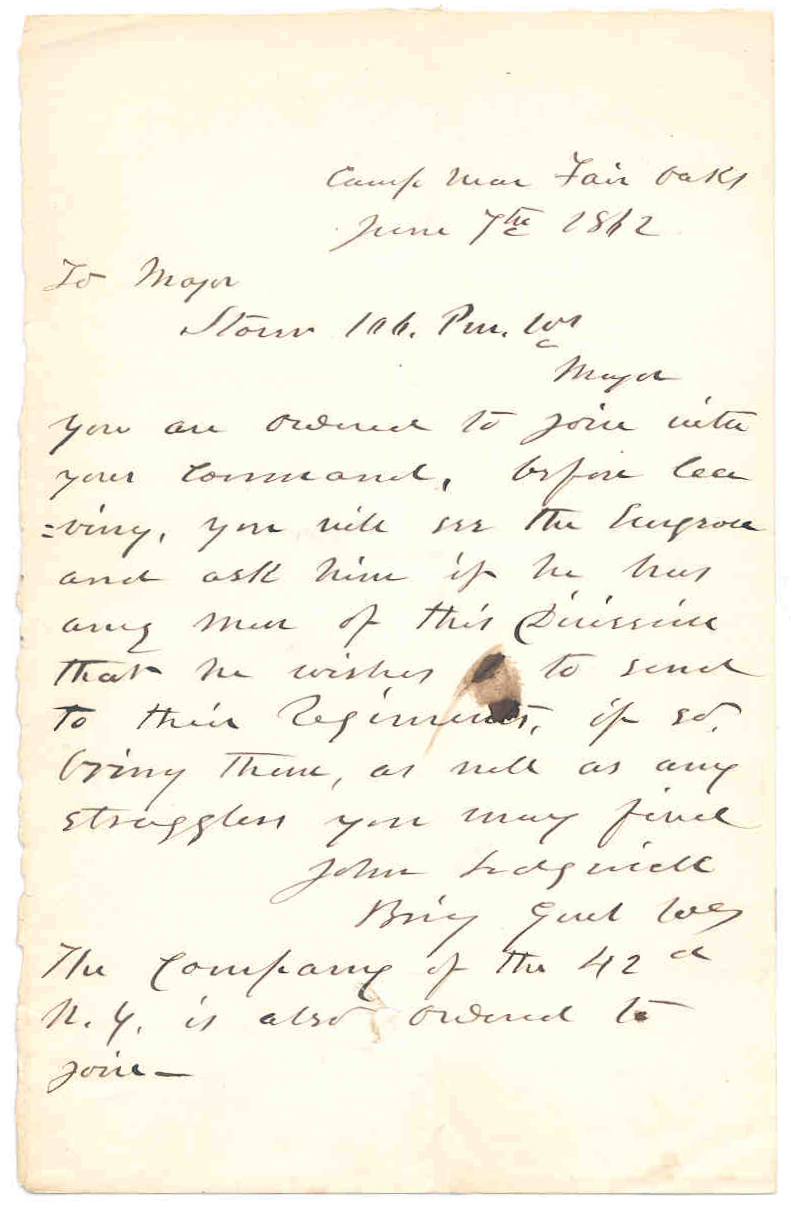 Camp near Fair Oaks
June 7th 1862
To Major
Stover 106. Pen. Vos
Major
You are ordered to join with
your Command, before lea
=ving, you will see the Surgeon
and ask him if he has
any men of this Division
that he wishes to send
to their Regiments, if so,
bring them, as well as any
stragglers you may find
John Sedgwick
Brig Genl Vos
The Company of the 42d
N.Y. is also ordered to
join—